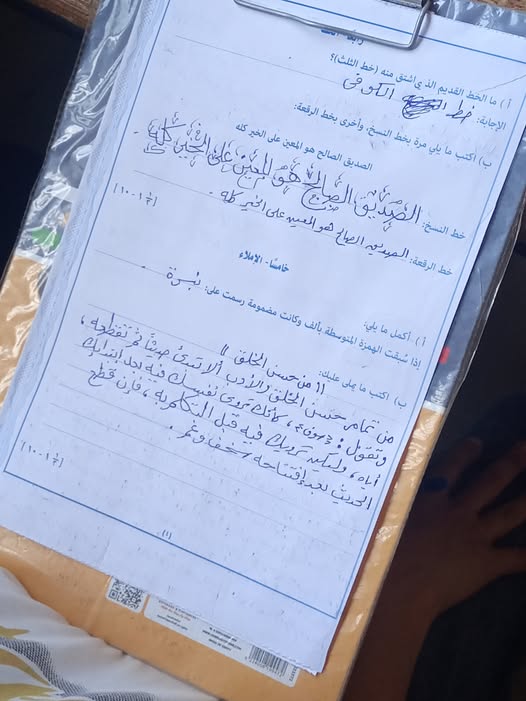 أ ) ما الخط القديم الذي اشتق منه (خط الثلث)؟
الإجابة: خط الكوفي
ب) اكتب ما يلي مرة بخط النسخ، وأخرى بخط الرقعة:
الصديق الصالح هو المعين على الخير كله
خط النسخ: الصديق الصالح هو المعين على الخير كله
خط الرقعة: الصديق الصالح هو المعين على الخير كله .
خامسًا - الإملاء
أ ) أكمل ما يلي:
إذا سُبقت الهمزة المتوسطة بألف وكانت مضمومة رسمت على: نبرة
ب) اكتب ما يملى عليك:
(( من حسن الخلق ))
من تمام حسن الخلق والأدب ألا تبتدئ حديثًا ثم تقطعه ،
وتقول : سوف ، كأنك تروي نفسك فيه بعد ابتدائك
إياه، وليكن ترويك فيه قبل التكلم به ، فإن قطع
الحديث بعد افتتاحه سخف وغم .
(١)